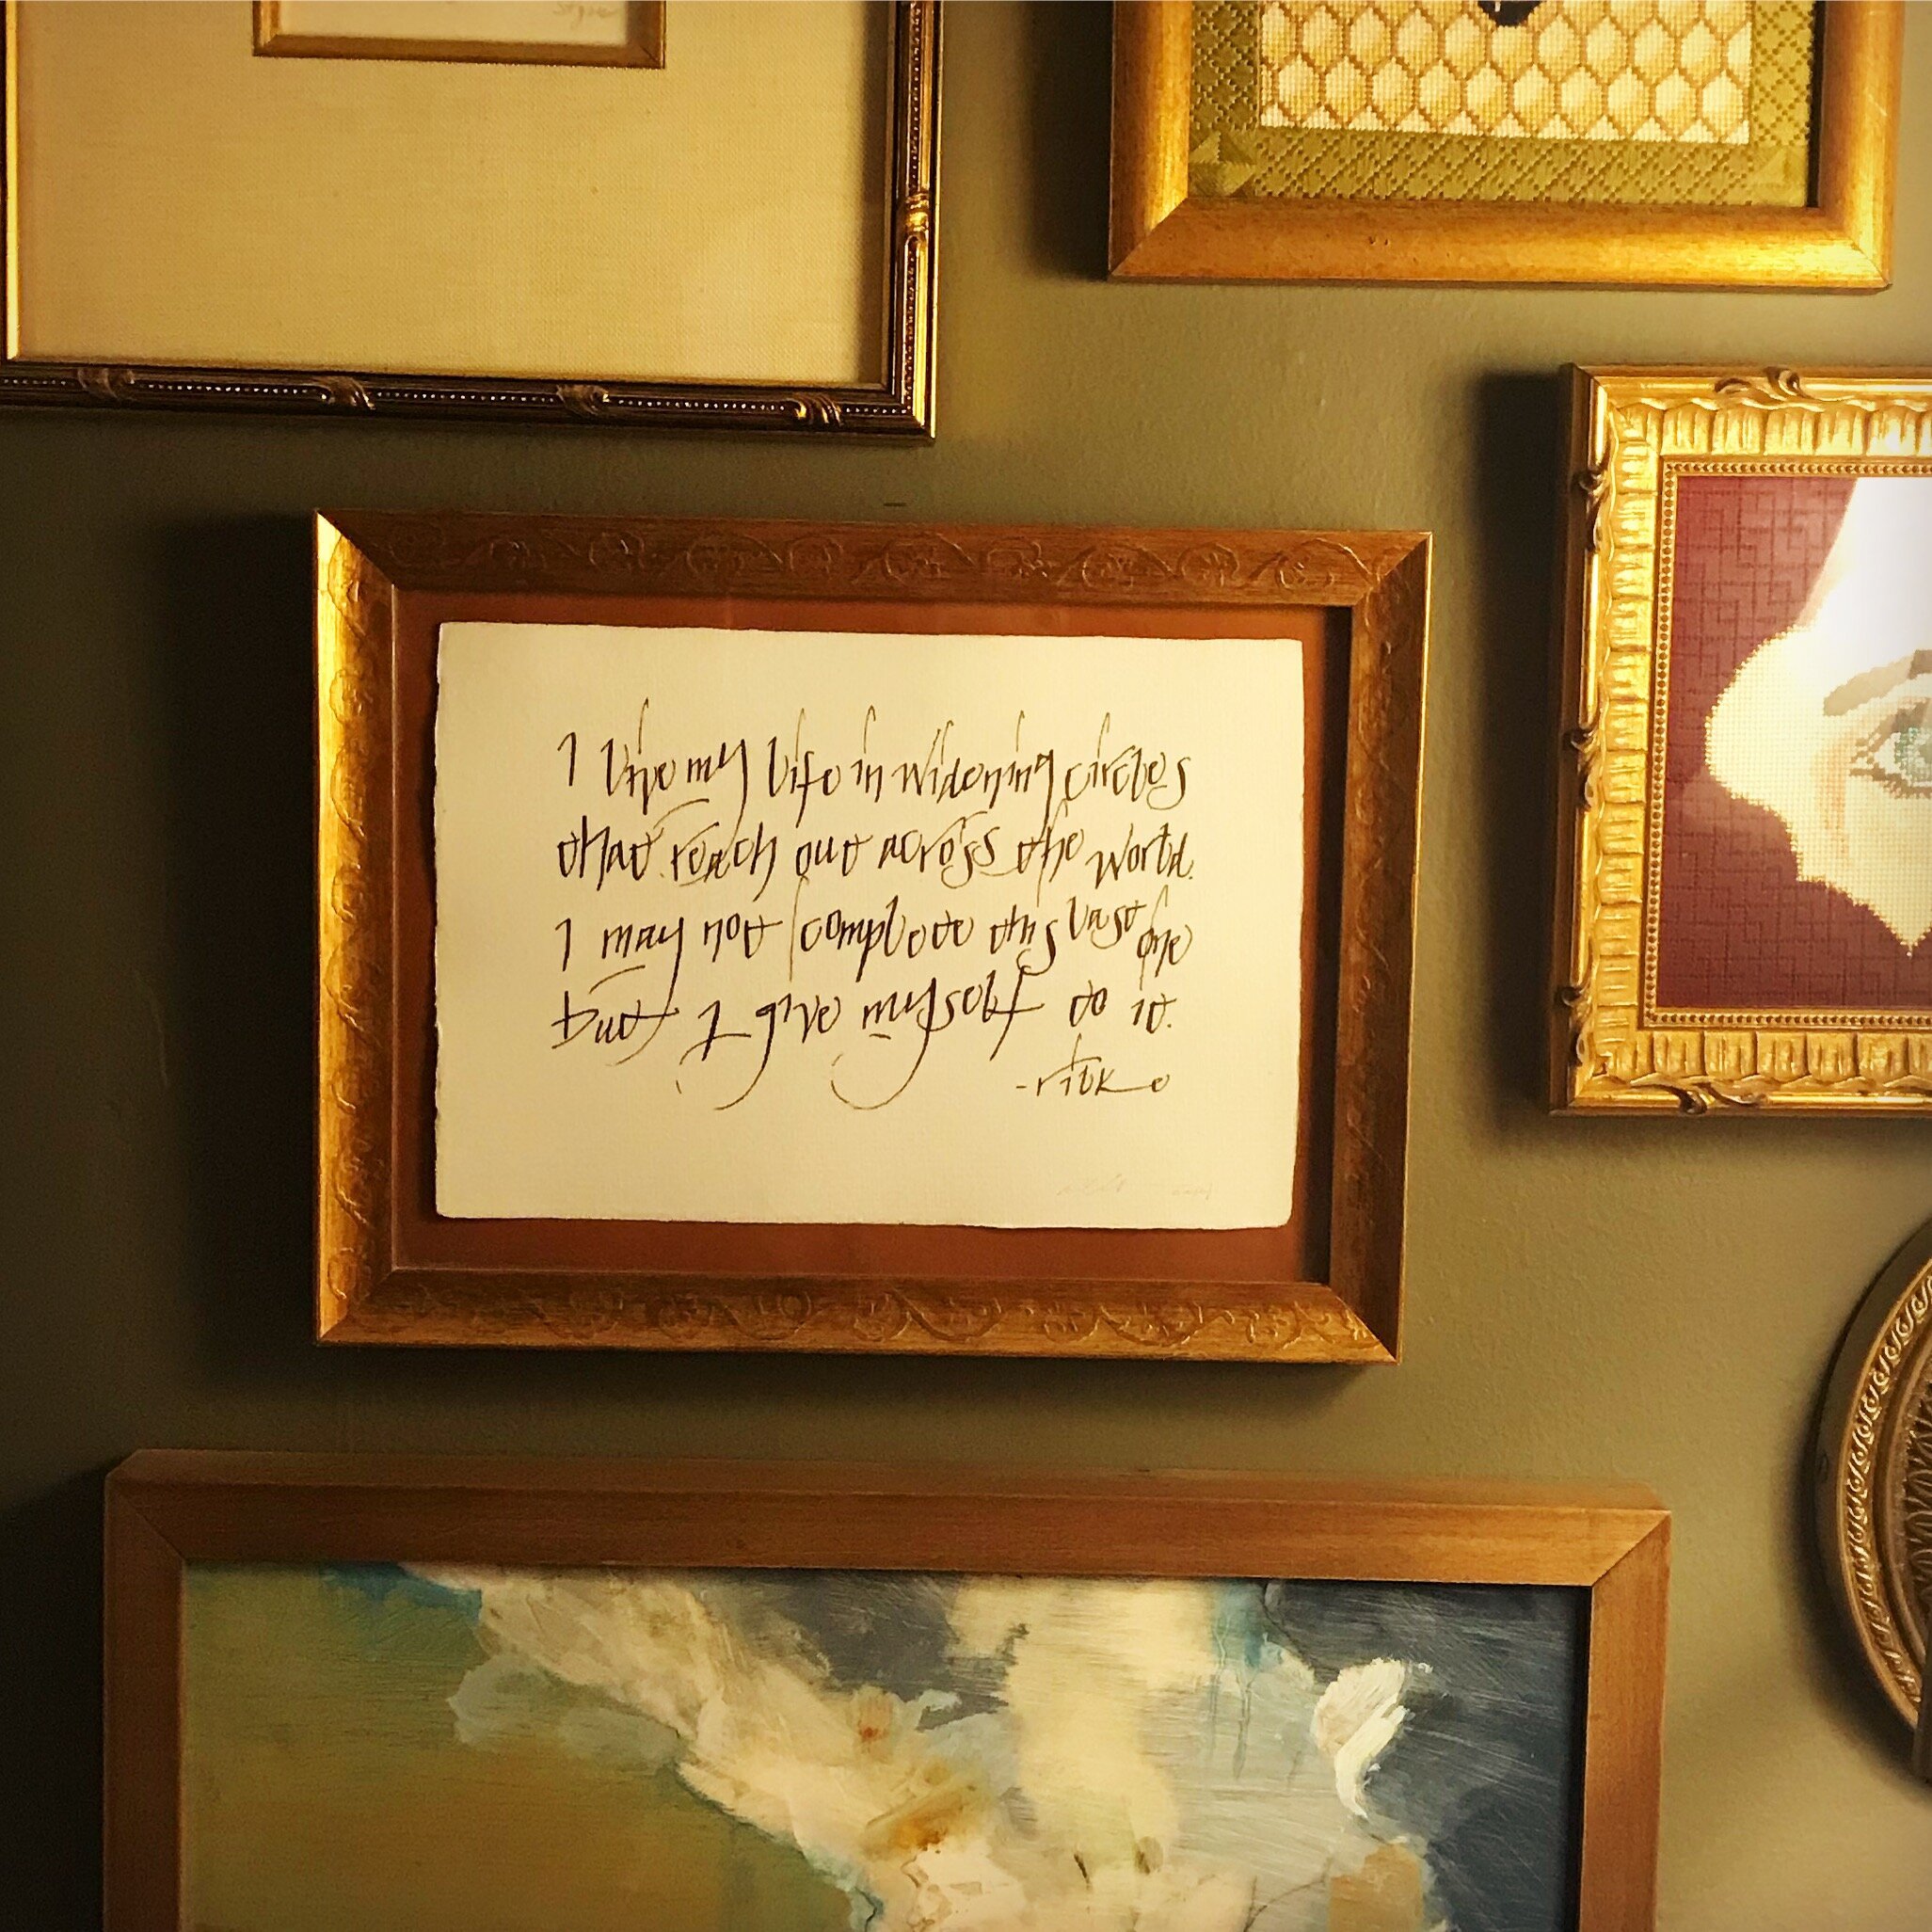 I live my life in widening circles
that reach out across the world.
I may not complete this last one
but I give myself to it.
-rilke